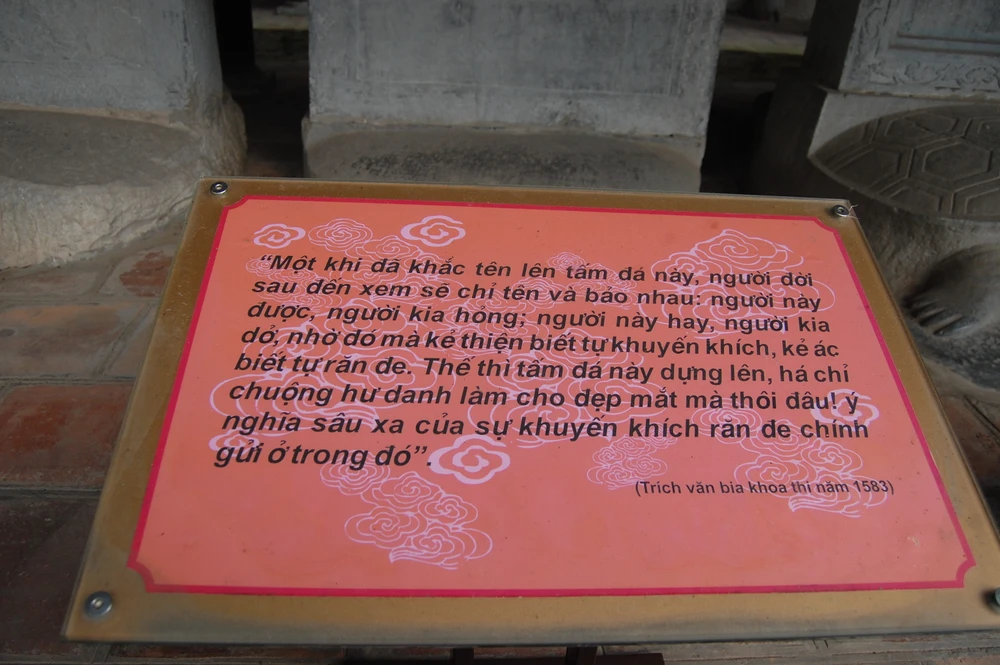 “Một khi đã khắc tên lên tấm đá này, người đời
sau đến xem sẽ chỉ tên và bảo nhau: người này
được, người kia hỏng; người này hay, người kia
dở, nhờ đó mà kẻ thiện biết tự khuyến khích, kẻ ác
biết tự răn đe. Thế thì tấm đá này dựng lên, há chỉ
chuộng hư danh làm cho đẹp mắt mà thôi đâu! ý
nghĩa sâu xa của sự khuyến khích răn đe chính
gửi ở trong đó”.
(Trích văn bia khoa thi năm 1583)